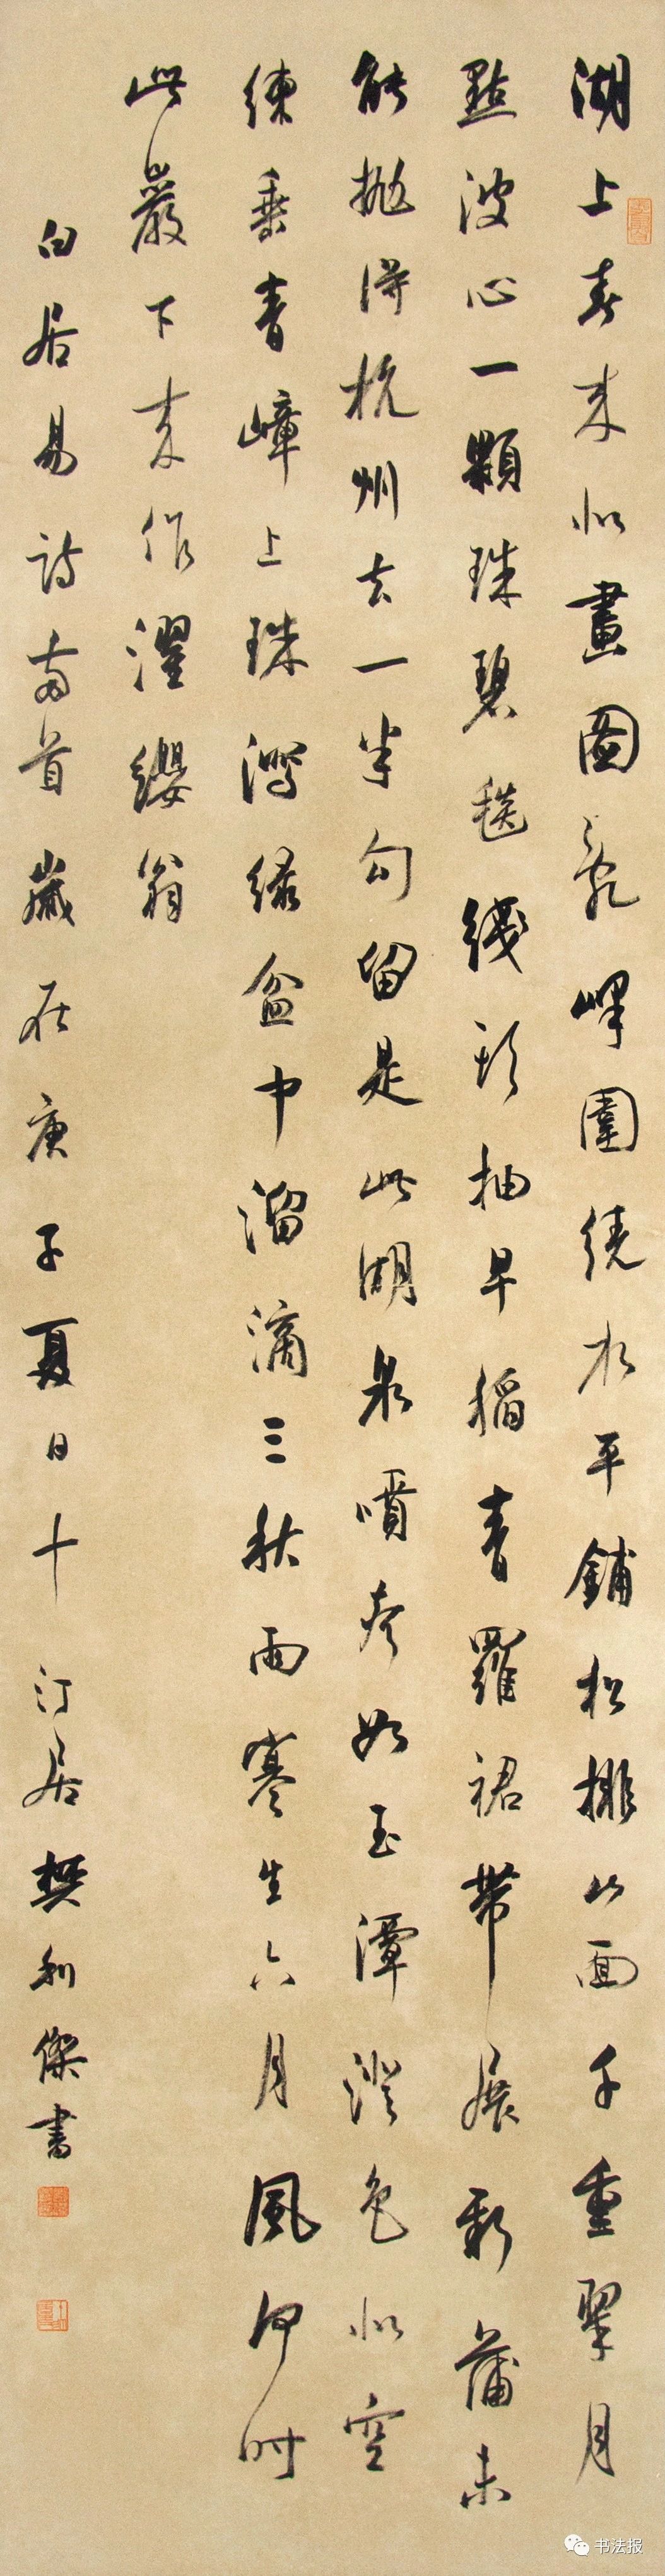 湖上春来似畫圖亂峰圍繞水平鋪松排山面千重翠月
點波心一顆珠碧毯綫頭抽早稻青羅裙帶展新蒲未
能抛得杭州去一半勾留是此湖泉噴声如玉潭澄色似空
練垂青嶂上珠瀉緑盆中溜滴三秋雨寒生六月風何时
此巖下来作濯纓翁
白居易詩兩首歲在庚子夏日十汀居樊利傑書
书法报